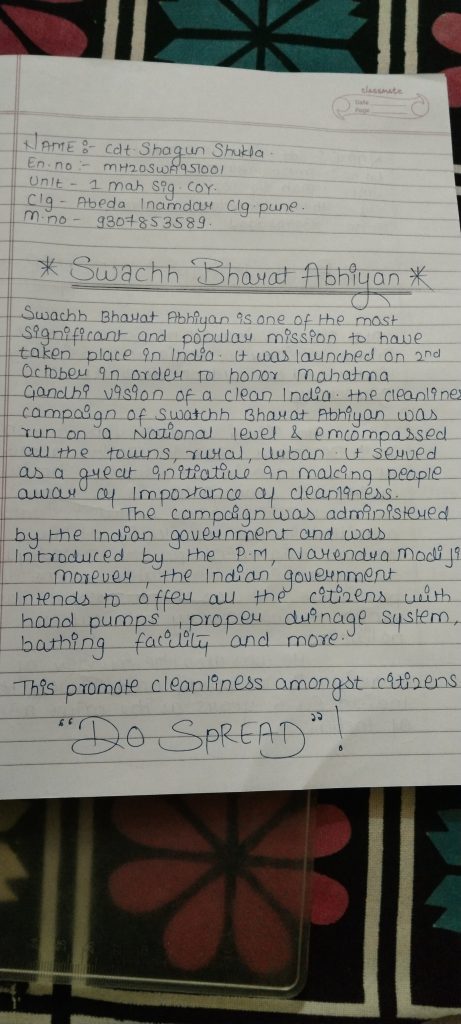 classmate
Date
Page
NAME :- Cdt. Shagun Shukla.
En. no :- MH20SWA951001
Unit - 1 mah Sig. COY.
Clg - Abeda Inamdar Clg. pune.
M.no - 9307853589.
* Swachh Bharat Abhiyan *
Swachh Bharat Abhiyan is one of the most
significant and popular mission to have
taken place in India. It was launched on 2nd
October in order to honor Mahatma
Gandhi vision of a clean India. the cleanlines
campaign of Swatchh Bharat Abhiyan was
run on a National level & emcompassed
all the towns, rural, Urban. It served
as a great initiative in making people
awar of Importance of cleanliness.
The campaign was administered
by the Indian government and was
Introduced by the P.M, Narendra Modi ji
morever, the Indian government
Intends to offer all the citizens with
hand pumps, proper drinage system,
bathing facility and more.
This promote cleanliness amongst citizens
"DO SPREAD"!